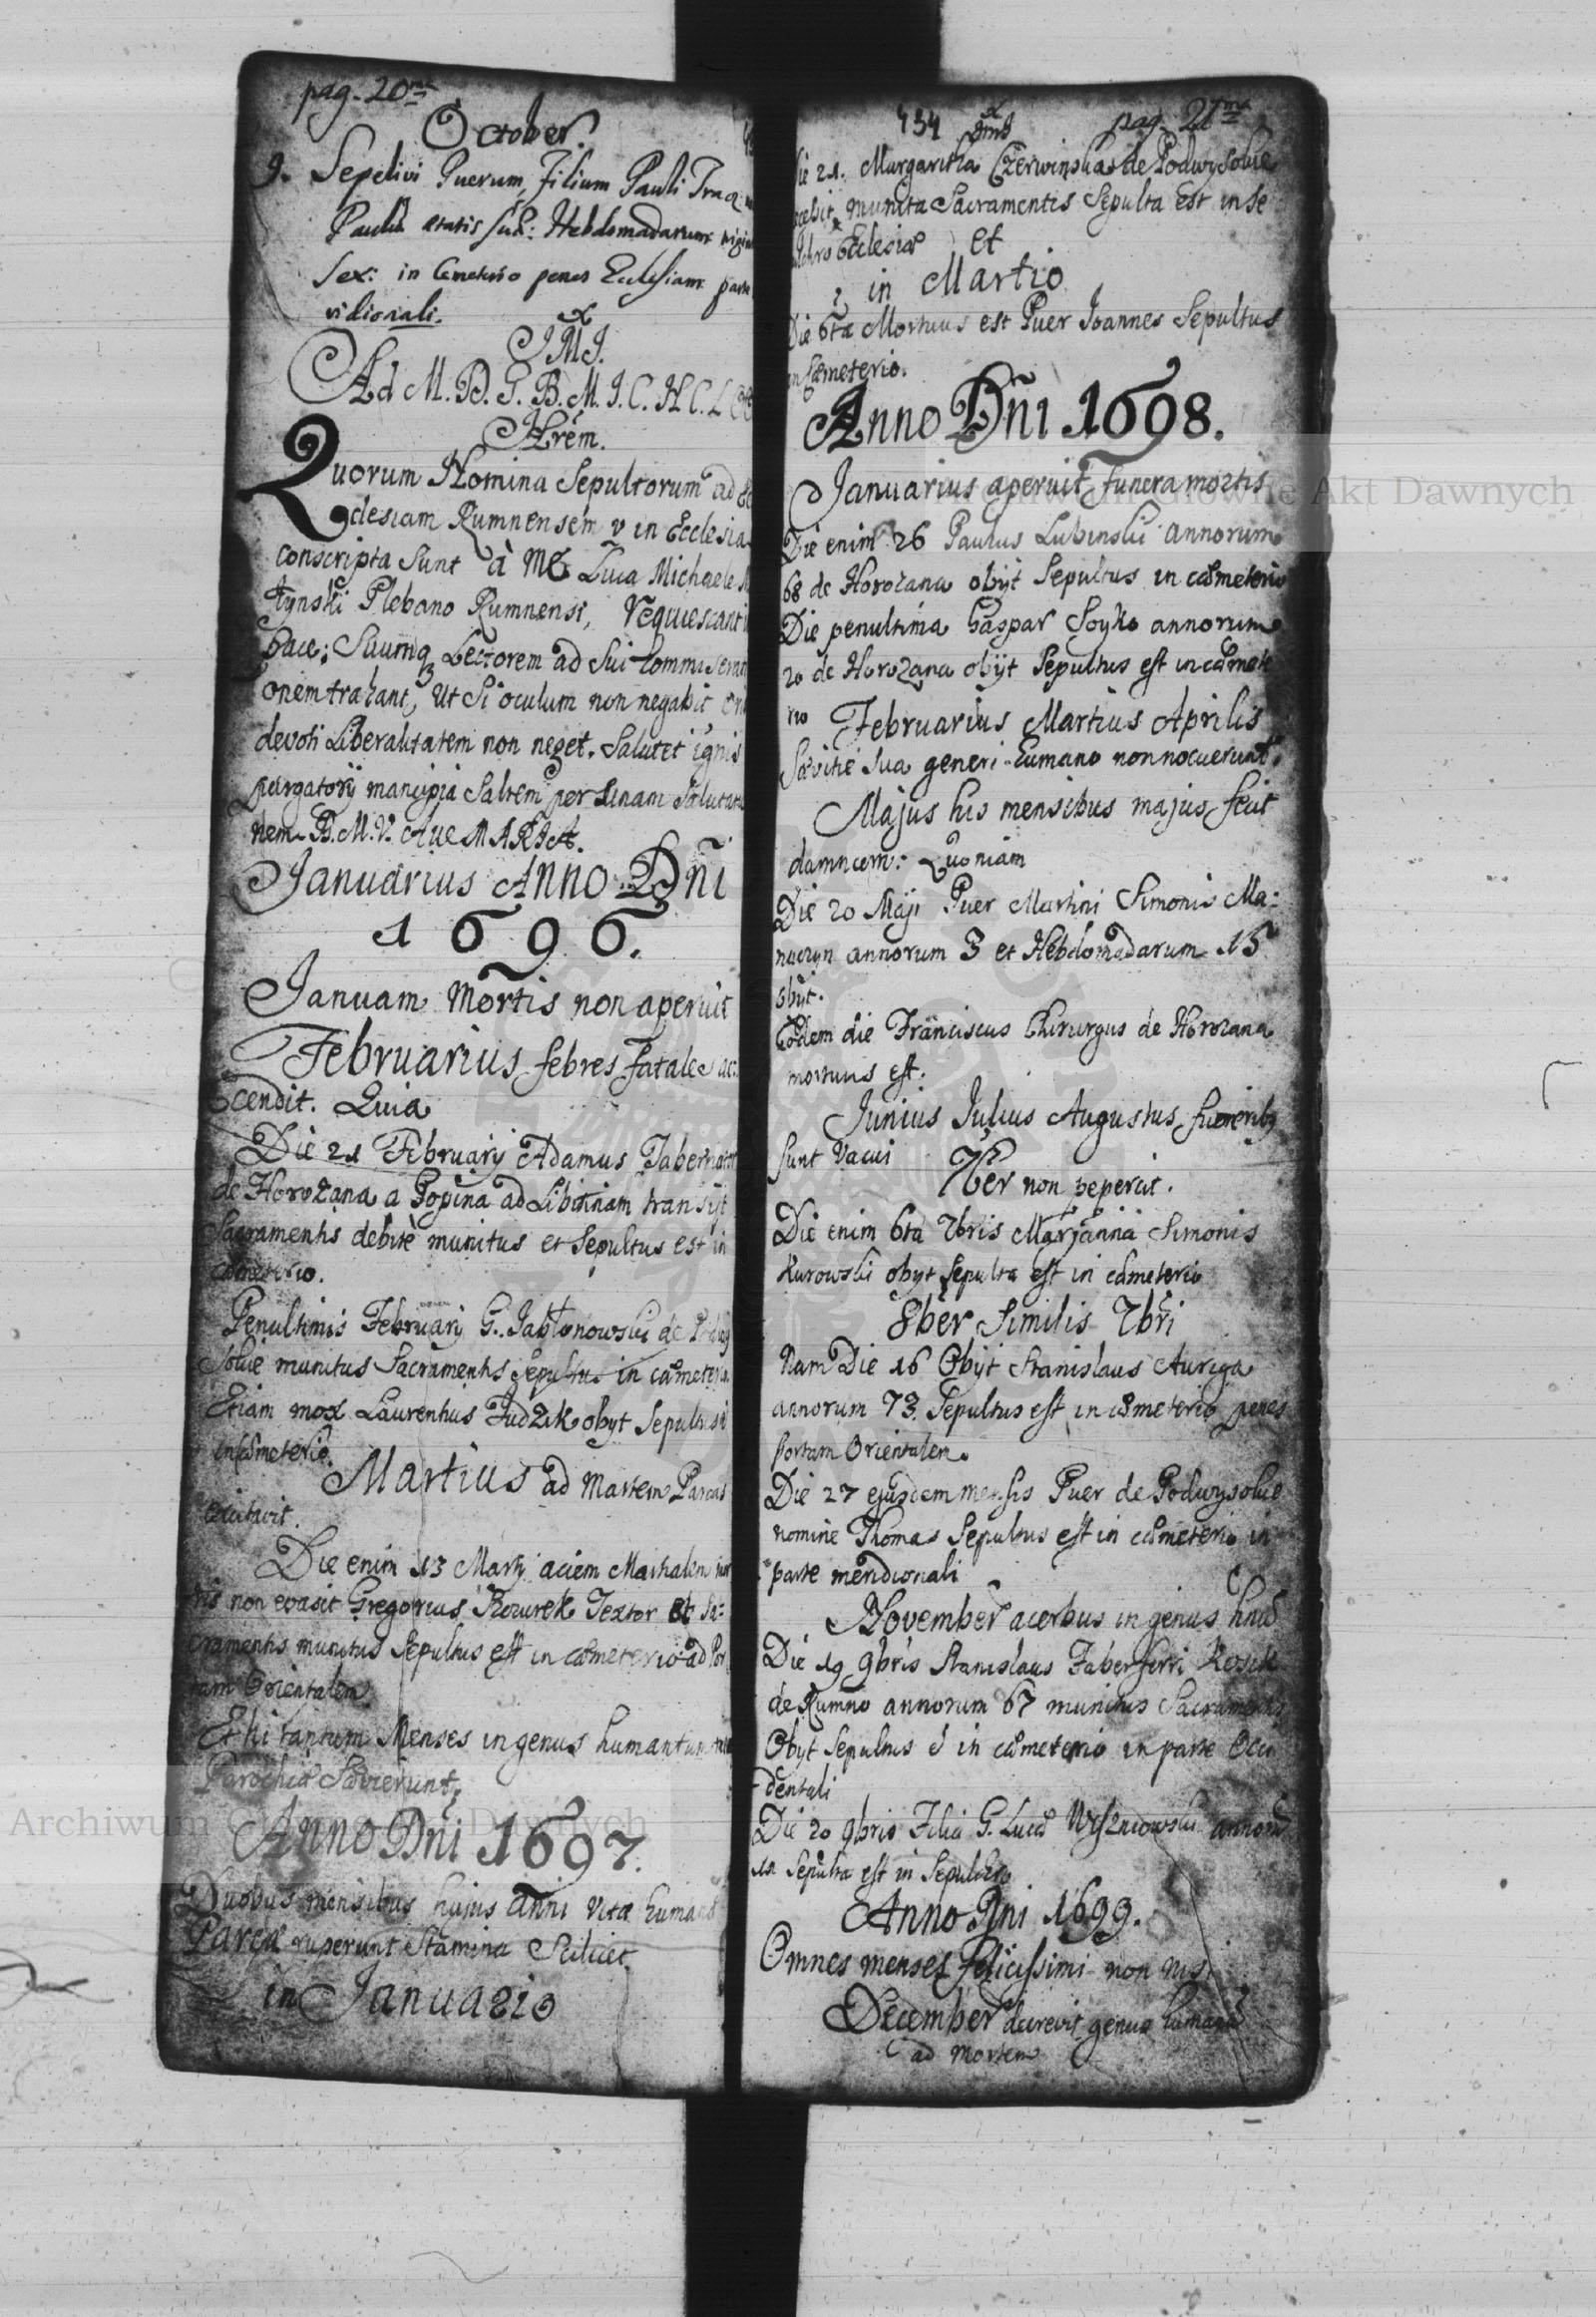 pag. 20ma
October.
9. Sepelivi Puerum, Filium Pauli
Hebdomadarum
Sex: in Cemeterio penes Ecclesiam
ridionali.
J.M.J.
Ad M. D. G. B. M. J. C. H. C. L.
Hrem.
Quorum Nomina Sepultorum ad Ec
clesiam Rumnensem v in Ecclesia
conscripta Sunt à Me Luca Michaele
tynski Plebano Rumnensi, requiescant i
pace; Suumq Lectorem ad Sui Commiserati
onem trahant, Ut Si oculum non negabit
devoti Liberalitatem non neget. Salutet ignis
purgatorij mancipia Saltem per unam Salutatio
nem B.M.V. Ave MARIA.
Januarius Anno Dni
1696.
Januam Mortis non aperuit
Februarius febres fatales ac:
cendit. Quia
Die 21 Februarij Adamus Tabernator
de Horozana a Popina ad Libitinam transijt
Sacramentis debitè munitus et Sepultus est in
cæmeterio.
Penultimis Februarij G. Jabłonowski de
munitus Sacramentis Sepultus in cæmeterio
Etiam mox Laurentius Judzik obyt Sepultus
in cæmeterio.
Martius ad Mortem Parcas
excitavit.
Die enim 13 Martij aciem Martialem
non evasit Gregorius Textor et Sa:
cramentis munitus Sepultus est in cæmeterio ad Por
tam Orientalem
Et hi tantum Menses in genus humanum
Parochiæ Sævierunt.
Anno Dni 1697.
Duobus mensibus hujus anni vitæ humanæ
Parcæ ruperunt Stamina Scilicet
in Januario
434 pag. 21ma
Die 21. Margaritha Czerwinska de Podwysokie
munita Sacramentis Sepulta Est in Se
pulchro Ecclesiæ et
in Martio
Die 6ta Mortuus est Puer Joannes Sepultus
in Cæmeterio.
Anno Dni 1698.
Januarius aperuit funera mortis
Die enim 26 Paulus Lubinski annorum
68 de Horozana obijt Sepultus in cæmeterio
Die penultima Gaspar Soyko annorum
20 de Horozana obijt Sepultus est in cæmete
rio Februarius Martius Aprilis
Sævitie sua generi humano non nocuerunt.
Majus his mensibus majus fecit
damnum: Quoniam
Die 20 Maji Puer Martini Simonis Ma:
annorum 3 et Hebdomadarum 15
obijt.
Eodem die Franciscus Chirurgus de Horozana
mortuus est.
Junius Julius Augustus funeribq
Sunt Vacui 7ber non pepercit.
Die enim 6ta 7bris Marjanna Simonis
Kurowski obyt Sepulta est in cæmeterio
8ber Similis 7bri
Nam Die 16 Obijt Stanislaus Auriga
annorum 73. Sepultus est in cæmeterio penes
portam Orientalem.
Die 27 ejusdem mensis Puer de Podwysokie
nomine Thomas Sepultus est in cæmeterio in
parte meridionali
November acerbus in genus
Die 19 9bris Stanislaus Faber ferri
de Rumno annorum 67 munitus Sacramentis
Obyt Sepultus é in cæmeterio in parte Occi
dentali
Die 20 9bris Filia G. Lucæ
Sepulta est in Sepulchro
Anno Dni 1699.
Omnes menses felicissimi non nisi
December decrevit genus humanū
ad mortem
Archiwum Główne Akt Dawnych